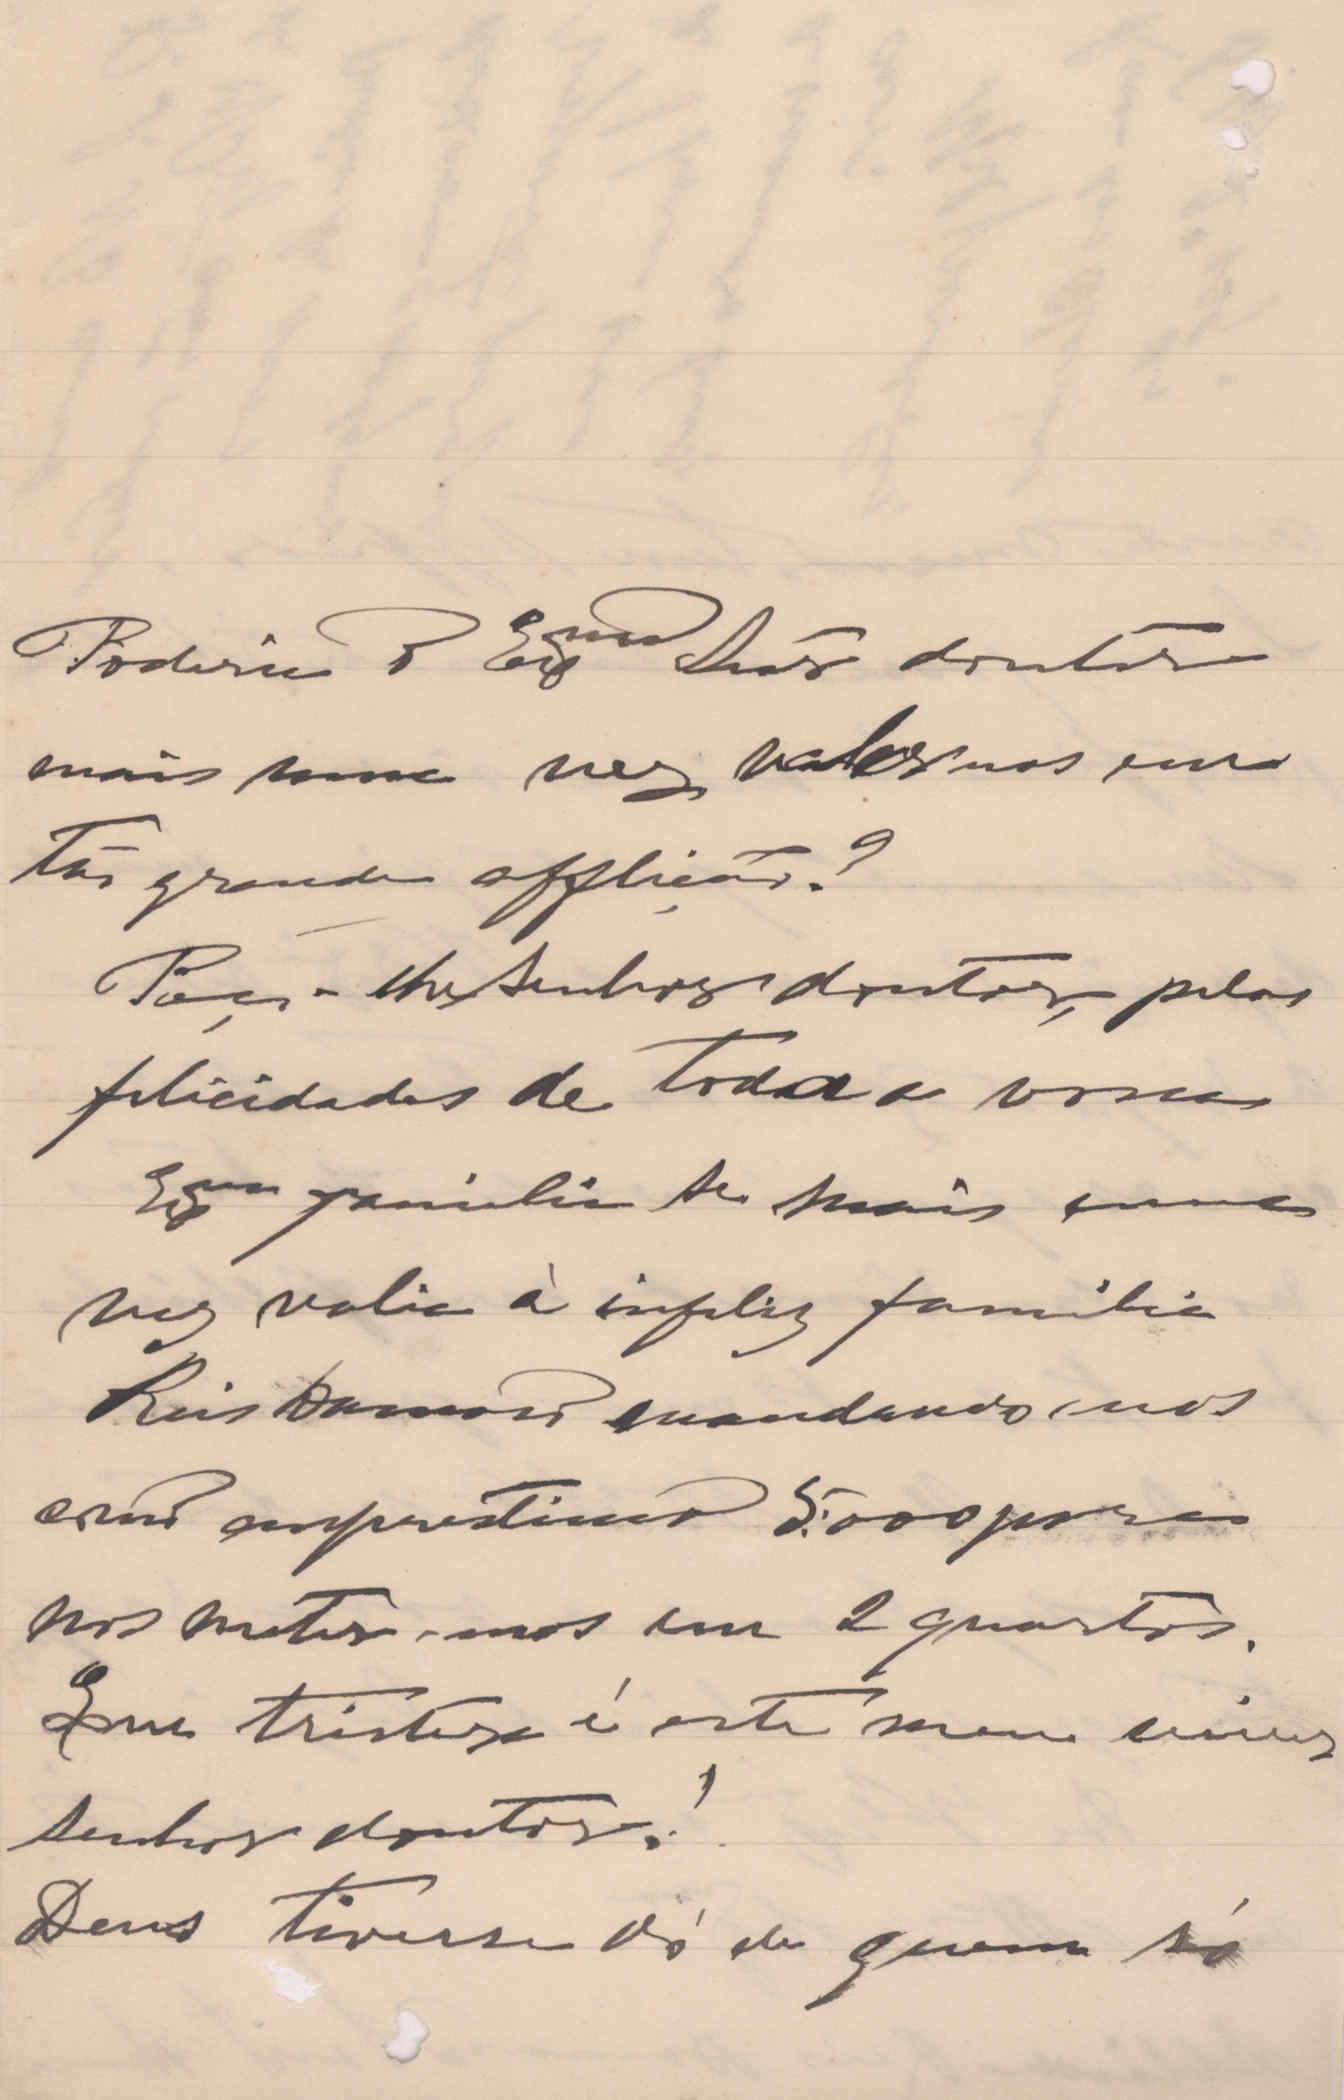 Poderia o Exmo Snor doutor
mais uma vez, valer nos em
tão grande afflição?
Peço-lhe senhor doutor, pelas
felicidades de toda a vossa
Exma familia se mais uma
vez valia à infeliz familia
Reis Damaso mandando-nos
como emprestimo 5:000 para
nos meter-mos em 2 quartos.
Que tristeza é este meu viver
senhor doutor!
Deus tivesse dó de quem só